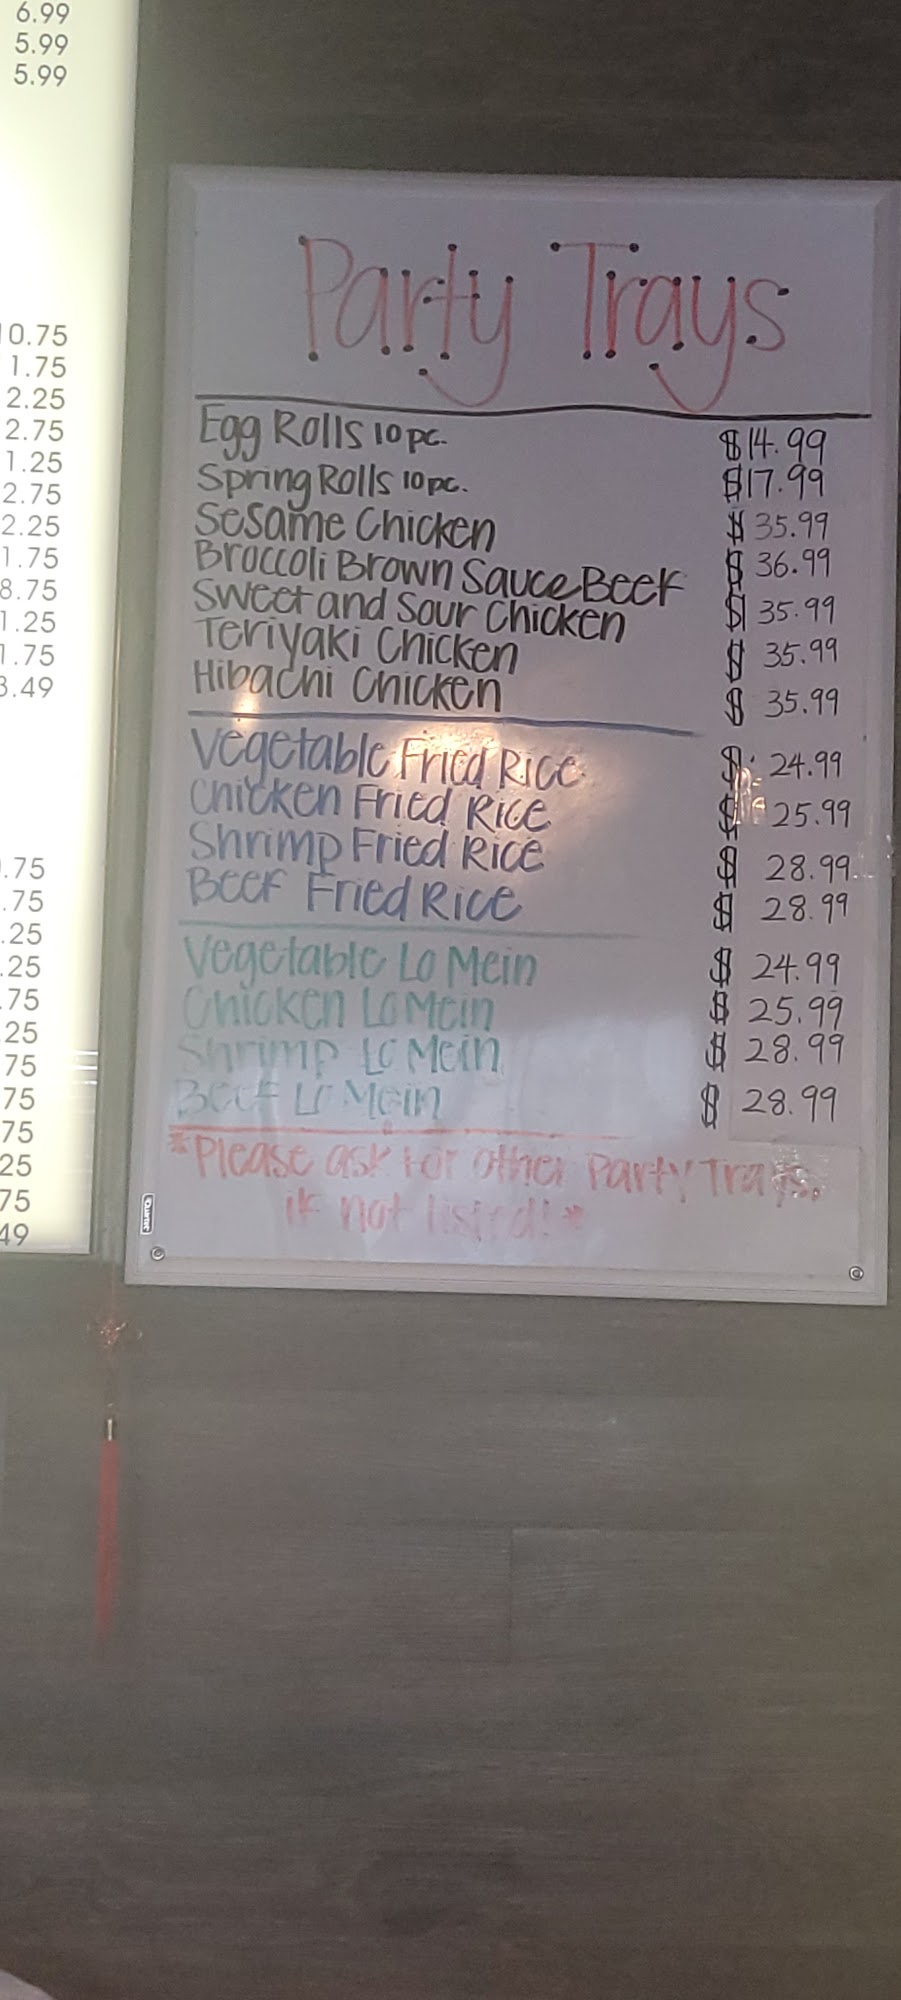 6.99
5.99
5.99
0.75
1.75
2.25
2.75
1.25
2.75
2.25
1.75
8.75
1.25
1.75
3.49
.75
.75
.25
.25
.75
.25
75
75
75
25
75
49
Party Trays
Egg Rolls 10 pc. $14.99
Spring Rolls 10 pc. $17.99
Sesame Chicken $ 35.99
Broccoli Brown Sauce Beef $ 36.99
Sweet and Sour Chicken $ 35.99
Teriyaki Chicken $ 35.99
Hibachi Chicken $ 35.99
Vegetable Fried Rice $ 24.99
Chicken Fried Rice $ 25.99
Shrimp Fried Rice $ 28.99
Beef Fried Rice $ 28.99
Vegetable Lo Mein $ 24.99
Chicken Lo Mein $ 25.99
Shrimp Lo Mein $ 28.99
Beef Lo Mein $ 28.99
*Please ask for other Party Trays.
if not listed!*
Quartet